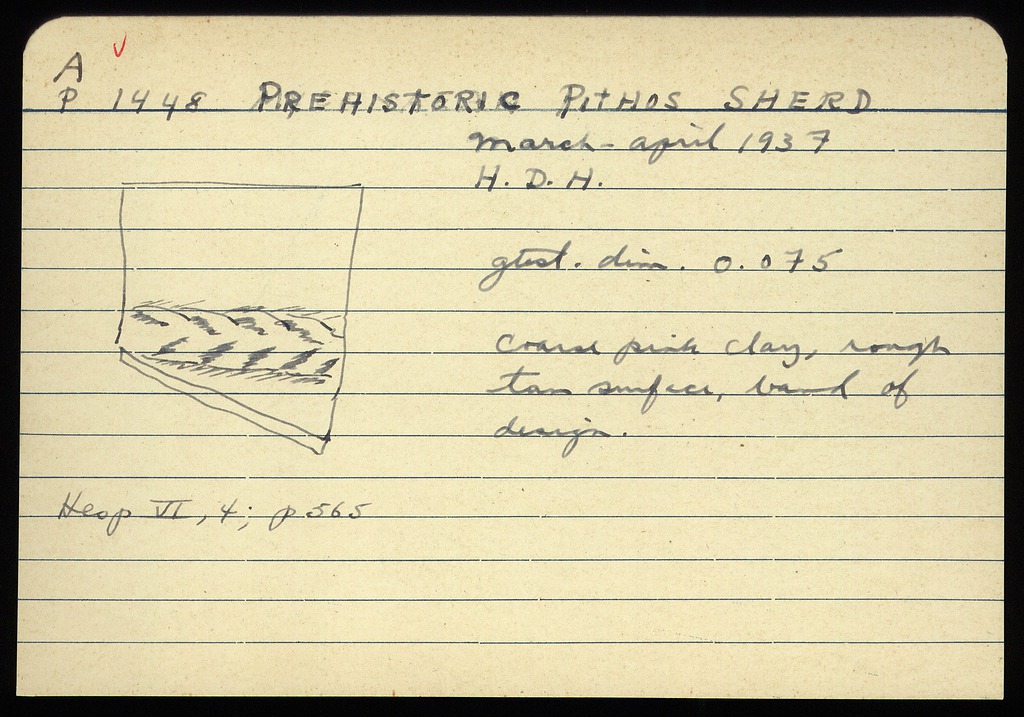 A
P 1448 PREHISTORIC PITHOS SHERD
March - April 1937
H. D. H.
gtest. dim. 0.075
Coarse pink clay, rough
tan surface, band of
design.
Hesp VI, 4; p 565